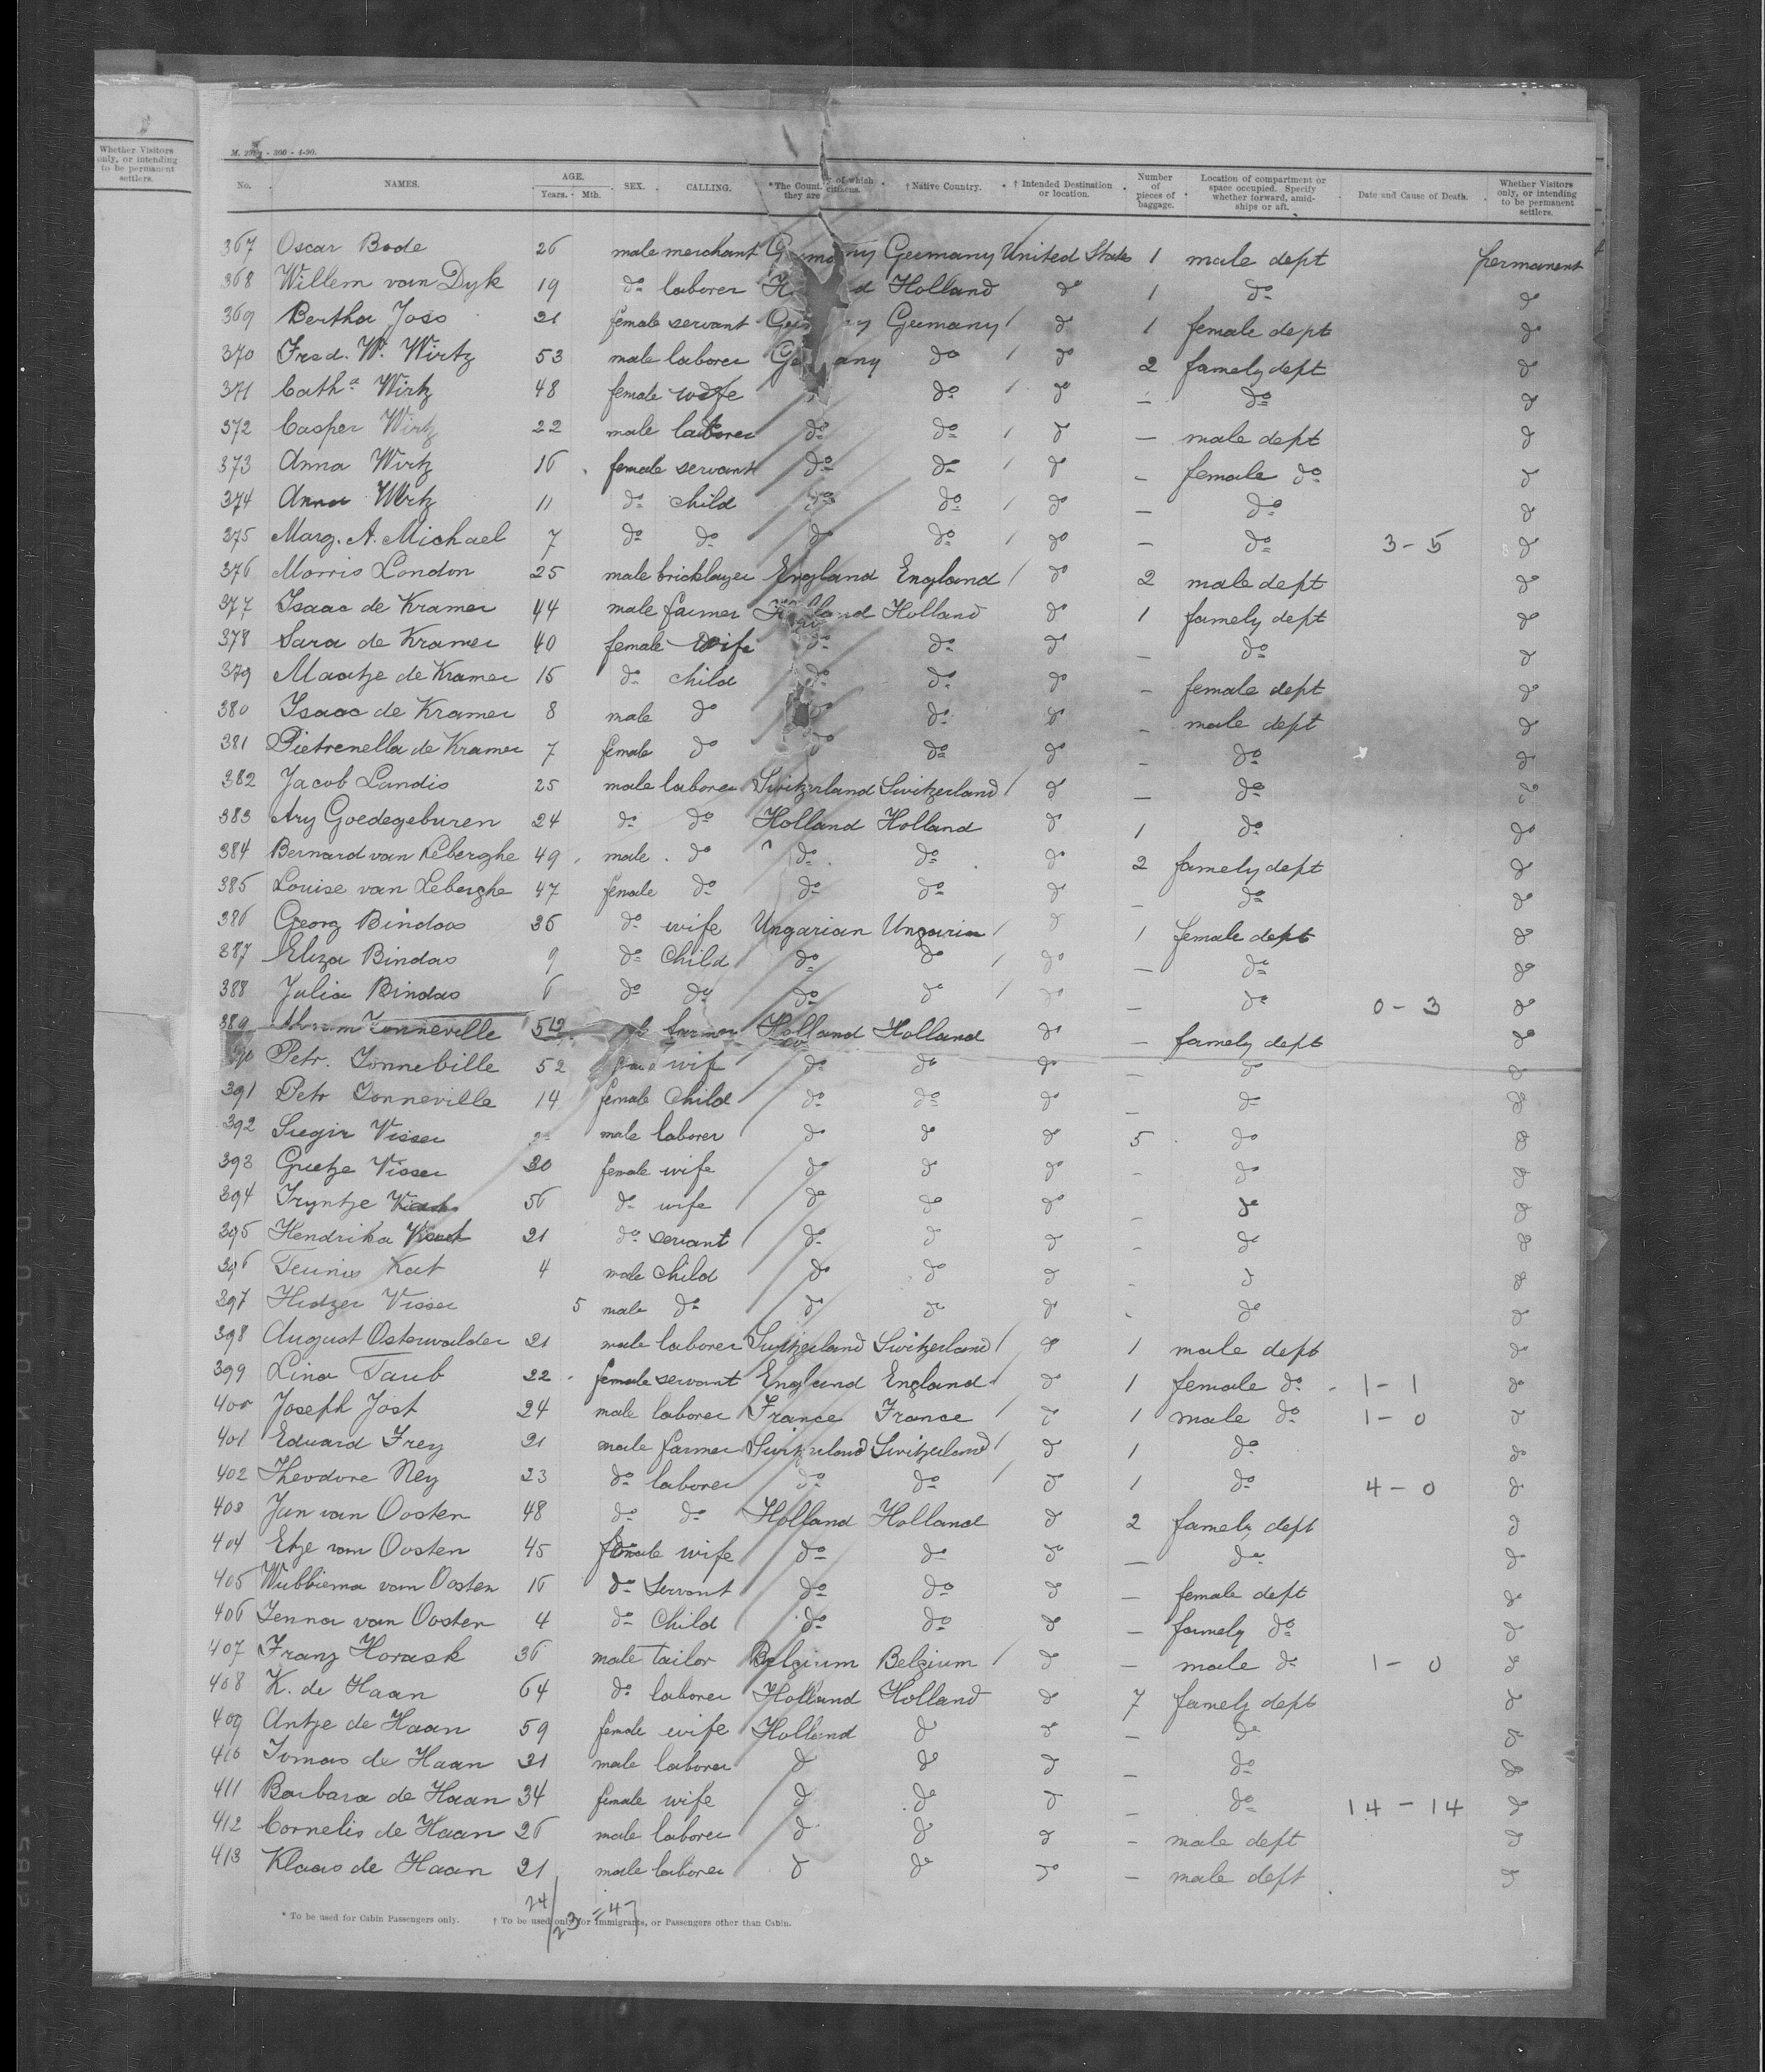 Whether Visitors only, or intending to be permanent settlers.
M. 
No. NAMES. AGE. Years. Mth. SEX. CALLING. *The Country of which they are citizens. † Native Country. † Intended Destination or location. Number of pieces of baggage. Location of compartment or space occupied. Specify whether forward, amidships or aft. Date and Cause of Death. Whether Visitors only, or intending to be permanent settlers.
367 Oscar Bode 26 male merchant Germany Germany United States 1 male dept permanent
368 Willem van Dyk 19 do laborer Holland do 1 do do
369 Bertha Joss 21 female servant Germany do 1 female dept do
370 Fred. W. Wirtz 53 male laborer Germany do do 2 famely dept do
371 Cath.a Wirtz 48 female wife do do — do do
372 Casper Wirtz 22 male laborer do do do — male dept do
373 Anna Wirtz 16 female servant do do do — female do do
374 Anna Wirtz 11 do child do do do — do do
375 Marg. A. Michael 7 do do do do do — do 3-5 do
376 Morris London 25 male bricklayer England England do 2 male dept do
377 Isaac de Kramer 44 male farmer Holland Holland do 1 famely dept do
378 Sara de Kramer 40 female wife do do do — do do
379 Maatje de Kramer 15 do child do do do — female dept do
380 Isaac de Kramer 8 male do do do do — male dept do
381 Pietrenella de Kramer 7 female do do do do — do do
382 Jacob Landis 25 male laborer Switzerland Switzerland do — do do
383 Ary Goedegeburen 24 do do Holland Holland do 1 do do
384 Bernard van Leberghe 49 male do do do do 2 famely dept do
385 Louise van Leberghe 47 female do do do do — do do
386 Georg Bindas 36 do wife Ungarian Ungarian do 1 female dept do
387 Eliza Bindas 9 do Child do do do — do do
388 Julia Bindas 6 do do do do do — do 0-3 do
389 Tonneville farmer Holland Holland do — famely dept do
Petr. Tonnebille 52 wife do do do — do do
391 Petr Tonneville 14 female Child do do do — do do
392 Visser male laborer do do do 5 do do
393 Grietje Visser 30 female wife do do do — do do
394 Tryntje 56 do wife do do do — do do
395 Hendrika 21 do servant do do do — do do
396 Teunis Kat 4 male child do do do - do do
397 Hidzer Visser 5 male do do do do - do do
398 August Osterwalder 21 male laborer Switzerland Switzerland do 1 male dept do
399 Lina Taub 22 female servant England England do 1 female do 1-1 do
400 Joseph Jost 24 male laborer France France do 1 male do 1-0 do
401 Eduard Frey 21 male farmer Switzerland Switzerland do 1 do do
402 Theodore Ney 23 do laborer do do do 1 do 4-0 do
403 Jan van Oosten 48 do do Holland Holland do 2 famely dept do
404 Etje van Oosten 45 female wife do do do — do do
405 Wubbiema van Oosten 16 do Servant do do do — female dept do
406 Jenna van Oosten 4 do Child do do do — famely do do
407 Franz Horask 36 male Tailor Belgium Belgium do — male do 1-0 do
408 K. de Haan 64 do laborer Holland Holland do 7 famely dept do
409 Antje de Haan 59 female wife Holland do do — do do
410 Tomas de Haan 31 male laborer do do do — do do
411 Barbara de Haan 34 female wife do do do — do 14-14 do
412 Cornelis de Haan 26 male laborer do do do — male dept do
413 Klaas de Haan 21 male laborer do do do — male dept do
24/23 = 47
* To be used for Cabin Passengers only. † To be used only for Immigrants, or Passengers other than Cabin.